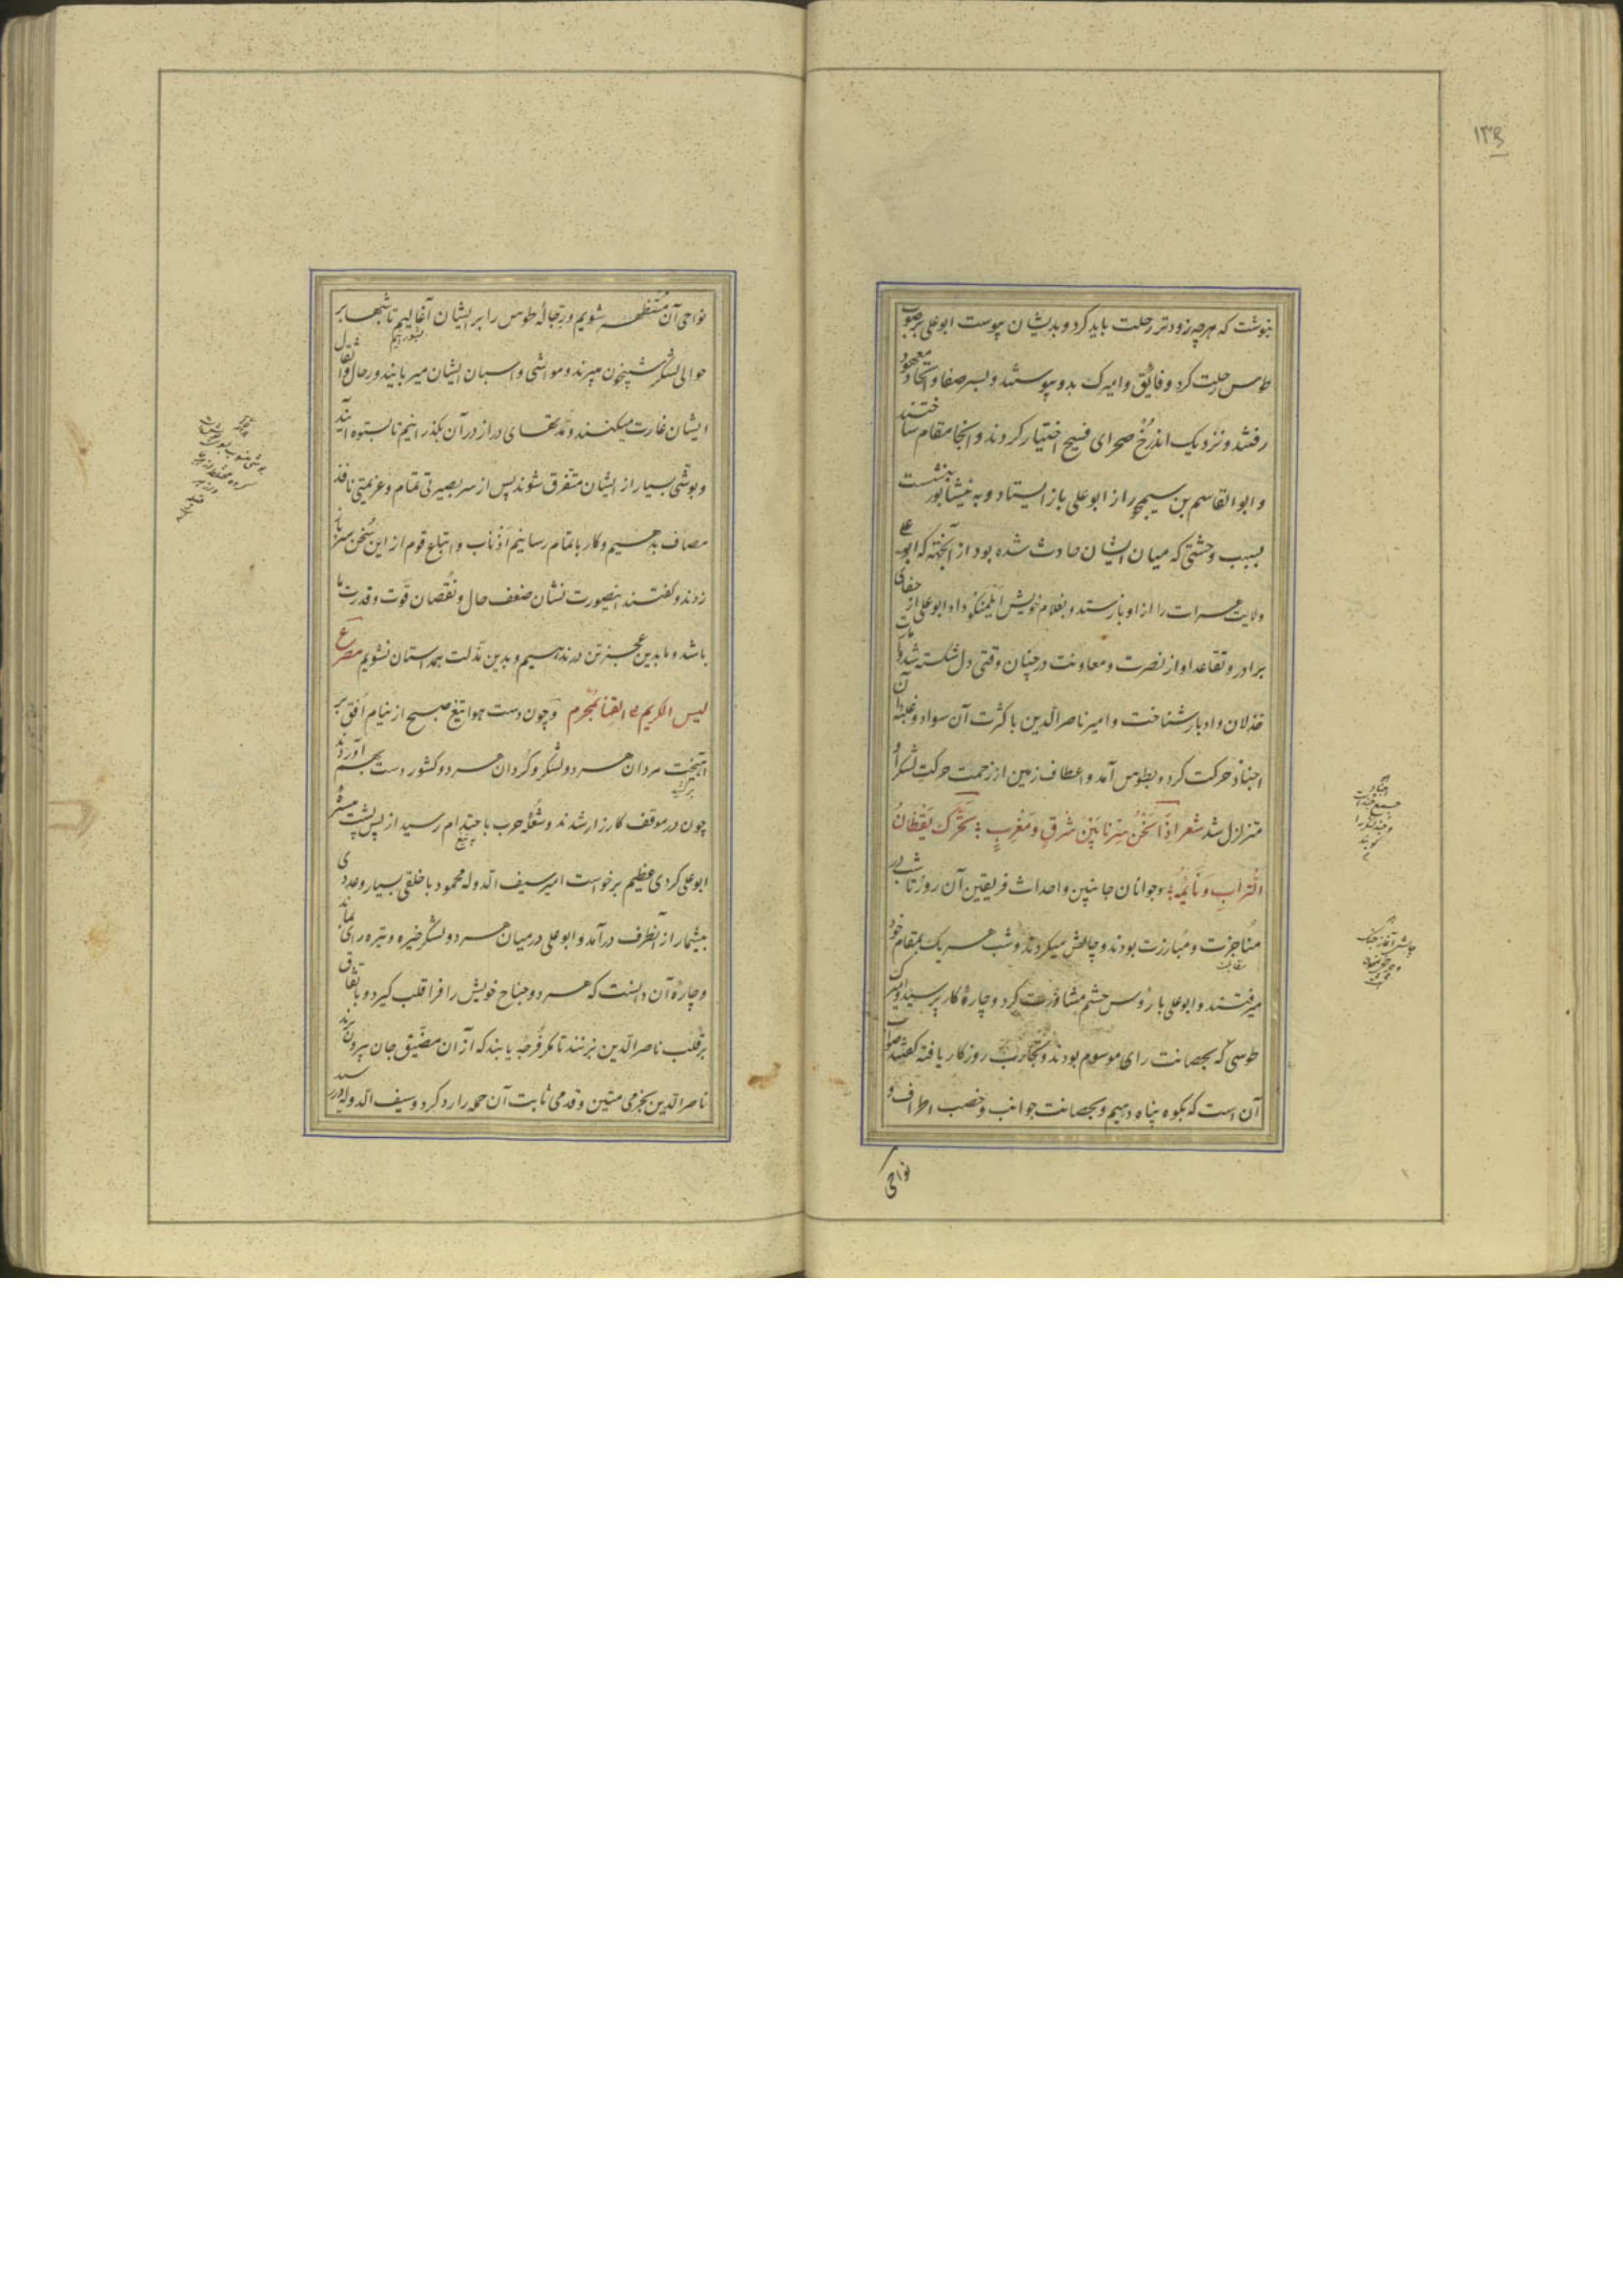 ۱۳۵
بنوشت که هرچه زودتر رحلت باید کرد و بدیشان پیوست ابو علی بر صوب
طوس رحلت کرد و فائق و امیرک بدو پیوستند و بسر صفا و اتحاد معهود
رفتند و نزدیک اندرخ صحرای فسیح اختیار کردند و آنجا مقام ساختند
و ابو القاسم بن سیمجور از ابو علی باز ایستاد و به نیشابور بنشست
بسبب وحشتی که میان ایشان حادث شده بود از آنجهته که ابو علی
ولایت هرات را از او بازستد و بغلام خویش ایلمنکو داد ابو علی از جفای
برادر و تقاعد او از نصرت و معاونت در چنان وقتی دل شکسته شد و امارت
خذلان و ادبار شناخت و امیر ناصر الدین با کثرت آن سواد و غلبه آن
اجناد حرکت کرد و بطوس آمد و اعطاف زمین از زحمت حرکت لشکر او
متزلزل شد شعر اذا نحن سرنا بین شرق و مغرب تحرک یقظان
التراب و نایمه و جوانان جانبین و احداث فریقین آن روز تا شب در
مناجزت و مبارزت بودند و چالش میکردند و شب هر یک بمقام خود
میرفتند و ابو علی با رؤس حشم مشاورت کرد و چارهٔ کار پرسید امیرک
طوسی که بحصانت رای موسوم بودند و تجارب روزکار یافته کفتند صواب
آن است که بکوه پناه دهیم و بحصانت جوانب و خصب اطراف و
نواحی
نواحی آن مستظهر شویم و رجالهٔ طوس را بر ایشان آغالیم تا شبها بر
حوالی لشکر شبیخون میبرند و مواشی و اسبان ایشان میربایند و رحال و اثقال
ایشان غارت میکنند و مدتهای دراز در آن بگذرانیم تا بستوه آیند
و بوشی بسیار از ایشان متفرق شوند پس از سر بصیرتی تمام و عزیمتی نافذ
مصاف بدهیم و کار باتمام رسانیم اذناب و اتباع قوم از این سخن سر باز
زدند و کفتند اینصورت نشان ضعف حال و نقصان قوت و قدرت ما
باشد و ما بدین عجز تن درندهیم و بدین مذلت همداستان نشویم مصرع
لیس الکریم علی القنا بمحرم و چون دست هوا تیغ صبح از نیام افق بر
آهیخت مردان هر دو لشکر و کردان هر دو کشور دست بهم آوردند
چون در موقف کارزار شدند و شعله حرب باحتدام رسید از پس پشت میسره
ابو علی کردی عظیم برخواست امیر سیف الدوله محمود با خلقی بسیار و عددی
بیشمار از آنطرف درآمد و ابو علی در میان هر دو لشکر خیره و تیره رای بماند
و چارهٔ آن دانست که هر دو جناح خویش را فرا قلب کیرد و باتفاق
بر قلب ناصر الدین بزنند تا مکر فرجه یابند که از آن مضیق جان بیرون برند
ناصر الدین بحزمی متین و قدمی ثابت آن حمله را رد کرد و سیف الدوله در رسید